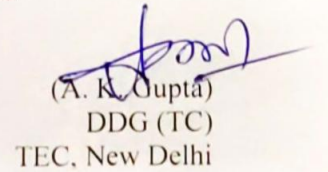 (A. K. Gupta)
DDG (TC)
TEC, New Delhi